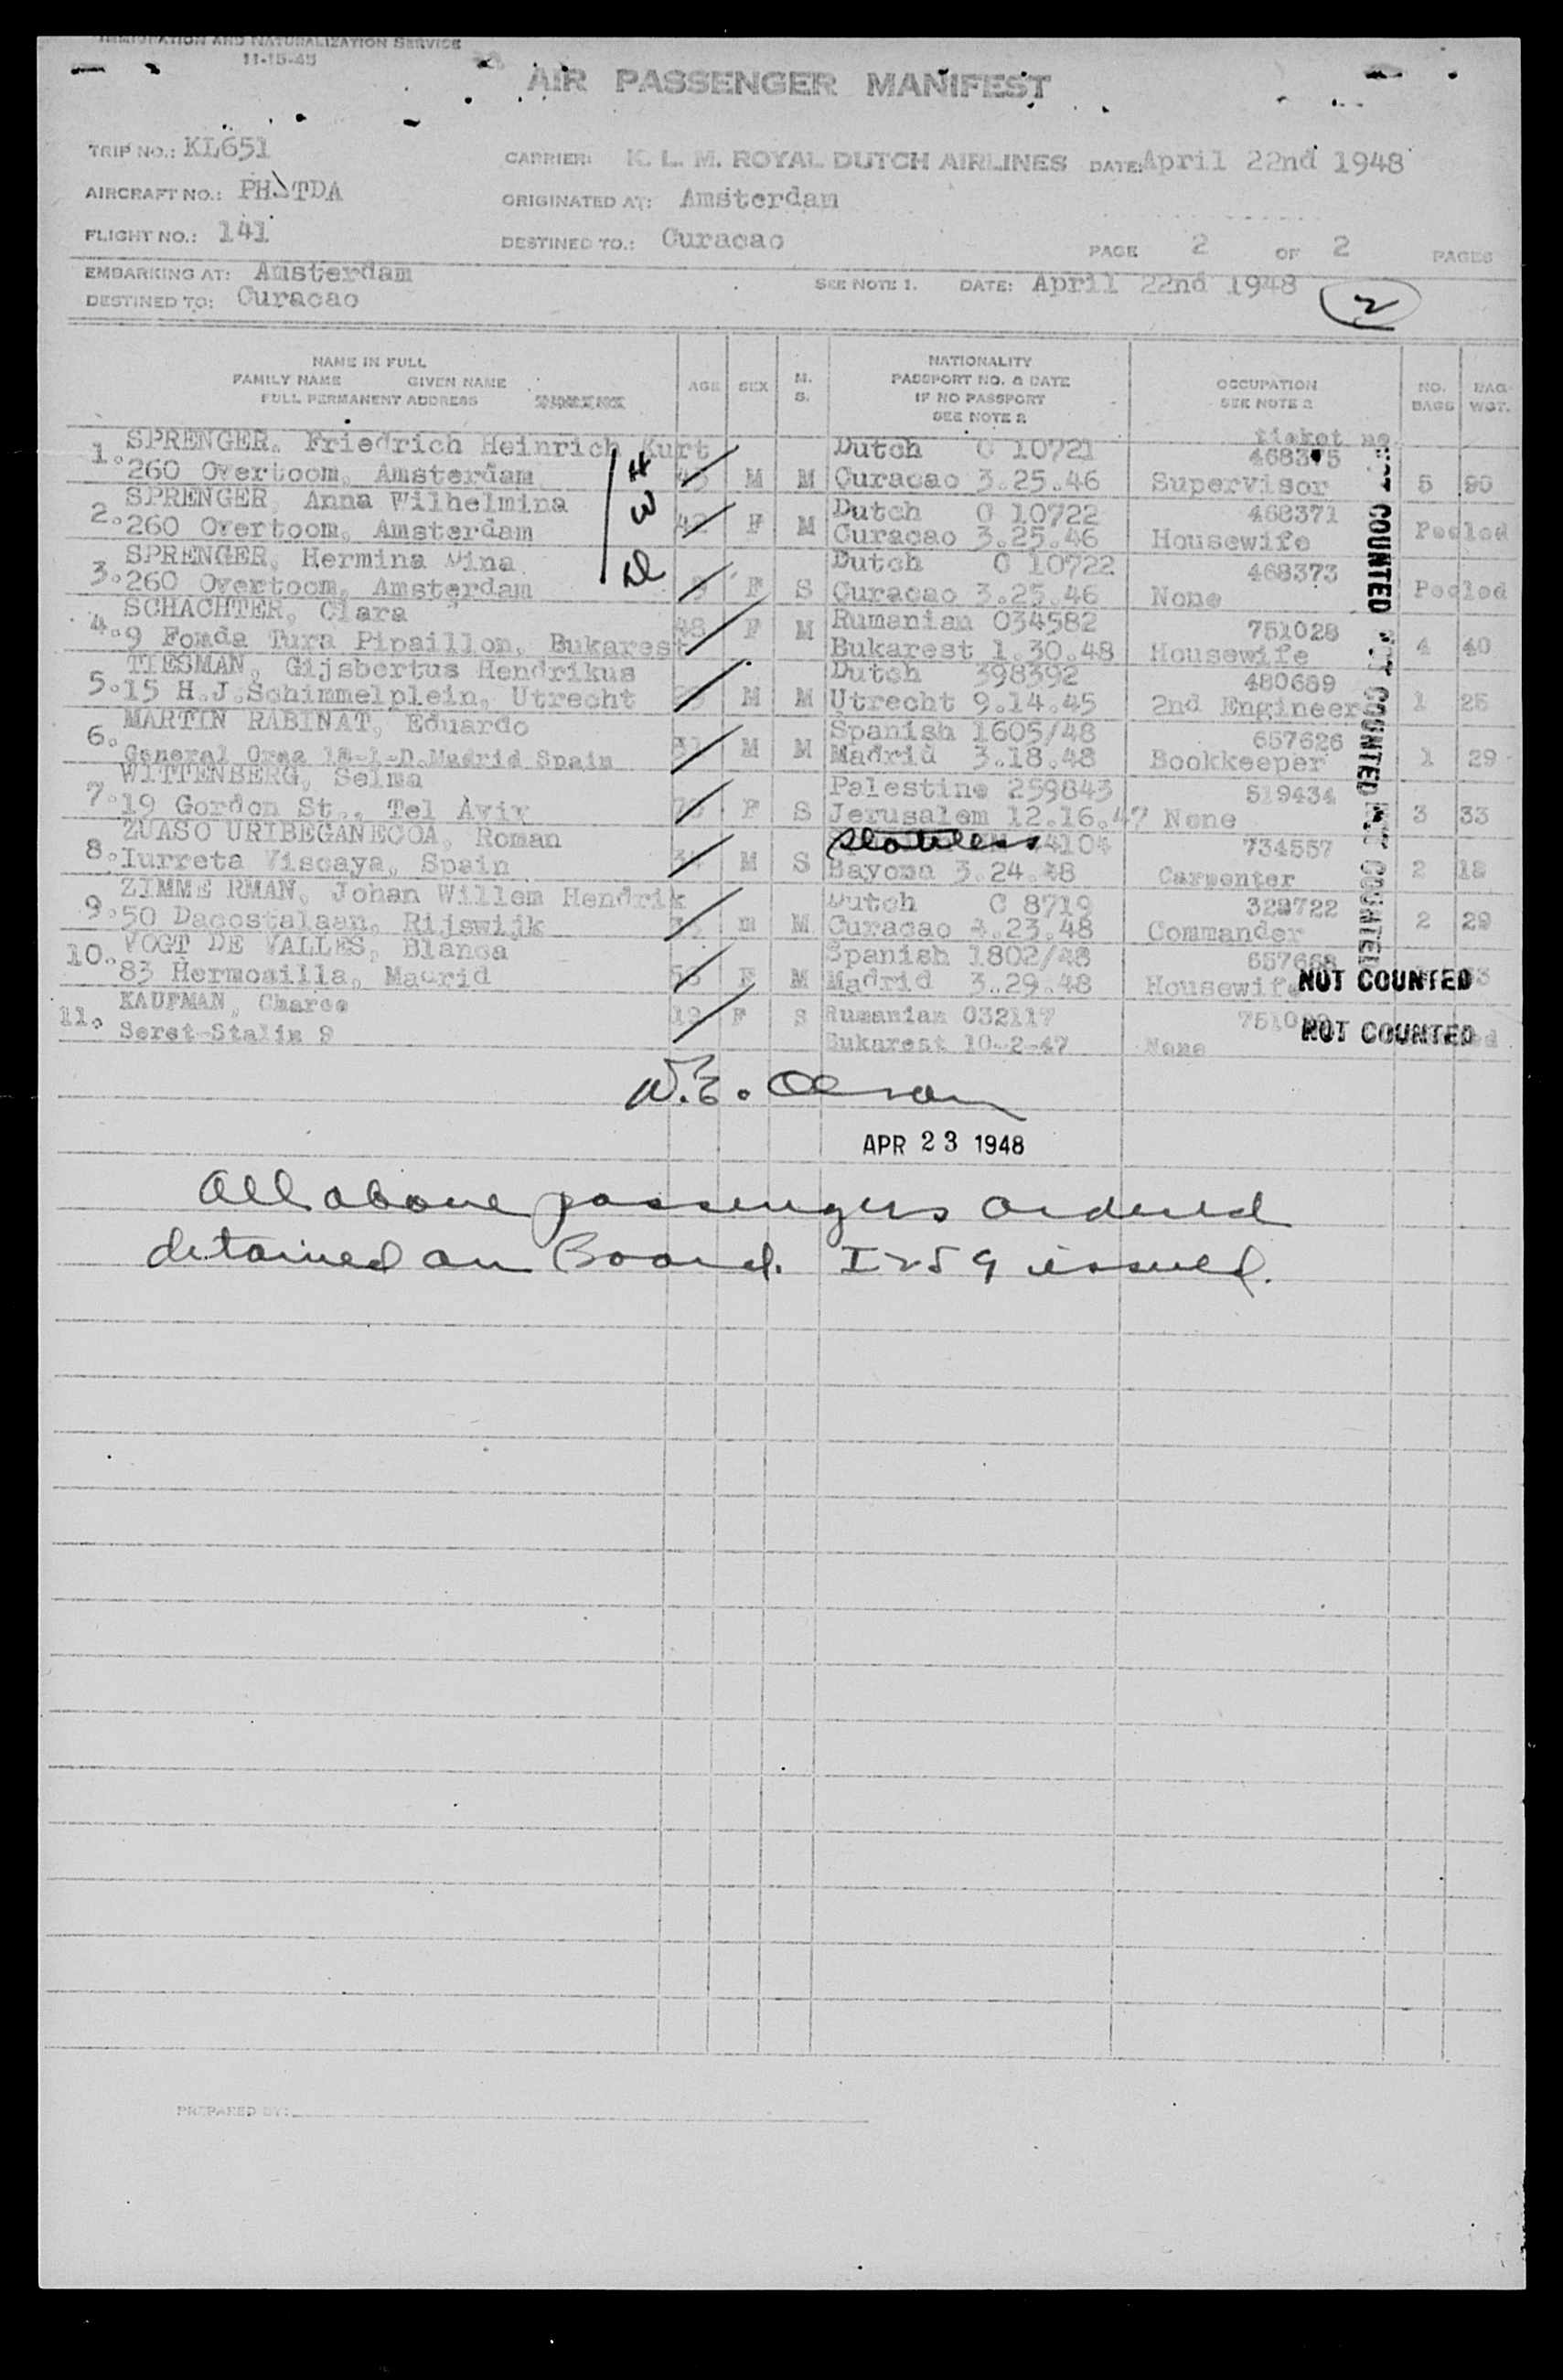 IMMIGRATION AND NATURALIZATION SERVICE
11-15-45
AIR PASSENGER MANIFEST
TRIP NO.: KL651 CARRIER: K. L. M. ROYAL DUTCH AIRLINES DATE: April 22nd 1948
AIRCRAFT NO.: PH-TDA ORIGINATED AT: Amsterdam
FLIGHT NO.: 141 DESTINED TO.: Curacao PAGE 2 OF 2 PAGES
EMBARKING AT: Amsterdam SEE NOTE 1. DATE: April 22nd 1948
DESTINED TO: Curacao 2
NAME IN FULL
FAMILY NAME GIVEN NAME
FULL PERMANENT ADDRESS
AGE SEX M. S.
NATIONALITY
PASSPORT NO. & DATE
IF NO PASSPORT
SEE NOTE 2
OCCUPATION
SEE NOTE 2
NO. BAGS
BAG. WGT.
ticket no
1. SPRENGER, Friedrich Heinrich Kurt H Dutch C 10721
260 Overtoom, Amsterdam M M Curacao 3.25.46 Supervisor 5
2. SPRENGER, Anna Wilhelmina W Dutch C 10722 468371
260 Overtoom, Amsterdam 42 F M Curacao 3.25.46 Housewife Pooled
3. SPRENGER, Hermina D Dutch C 10722 468373
260 Overtoom, Amsterdam F S Curacao 3.25.46 None Pooled
4. SCHACHTER, Clara Rumanian 034582 751028
9 Fomda Tura Pipaillon, Bukarest 48 F M Bukarest 1.30.48 Housewife 4 40
5. TIESMAN, Gijsbertus Hendrikus Dutch 398392 480689
15 H.J.Schimmelplein, Utrecht M M Utrecht 9.14.45 2nd Engineer 1 25
6. MARTIN RABINAT, Eduardo Spanish 1605/48 657626
General Madrid Spain M M Madrid 3.18.48 Bookkeeper 1 29
7. WITTENBERG, Selma Palestine 259843 519434
19 Gordon St., Tel Aviv F S Jerusalem 12.16.47 None 3 33
8. ZUASO URIBEGANECOA, Roman Stateless 4104 734557
Iurreta Viscaya, Spain M S Bayona 3.24.48 Carpenter 2 18
9. ZIMME RMAN, Johan Willem Hendrik Dutch C 8719
50 Dacostalaan, Rijswijk M M Curacao 4.23.48 Commander 2 29
10. VOGT DE VALLES, Blanca Spanish 1802/48
83 Hermosilla, Madrid F M Madrid 3.29.48 Housewife
11. KAUFMAN, Rumanian 032117
Seret-Stalin 9 19 F S Bukarest 10-2-47 None
NOT COUNTED
NOT COUNTED
NOT COUNTED
NOT COUNTED
NOT COUNTED
NOT COUNTED
W.E. Olson
APR 23 1948
All above passengers ordered
detained on Board. I259 issued.
PREPARED BY: